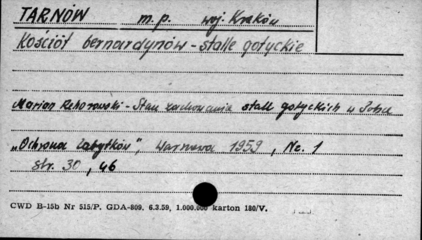 TARNÓW m.p. woj. Kraków
Kościół bernardynów - stalle gotyckie
Marian Rehorowski - Stan zachowania stall gotyckich w Polsce
"Ochrona Zabytków", Warszawa 1959, Nr. 1
str. 30, 46
CWD B-15b Nr 515/P. GDA-809. 6.3.59, 1.000.000 karton 180/V.